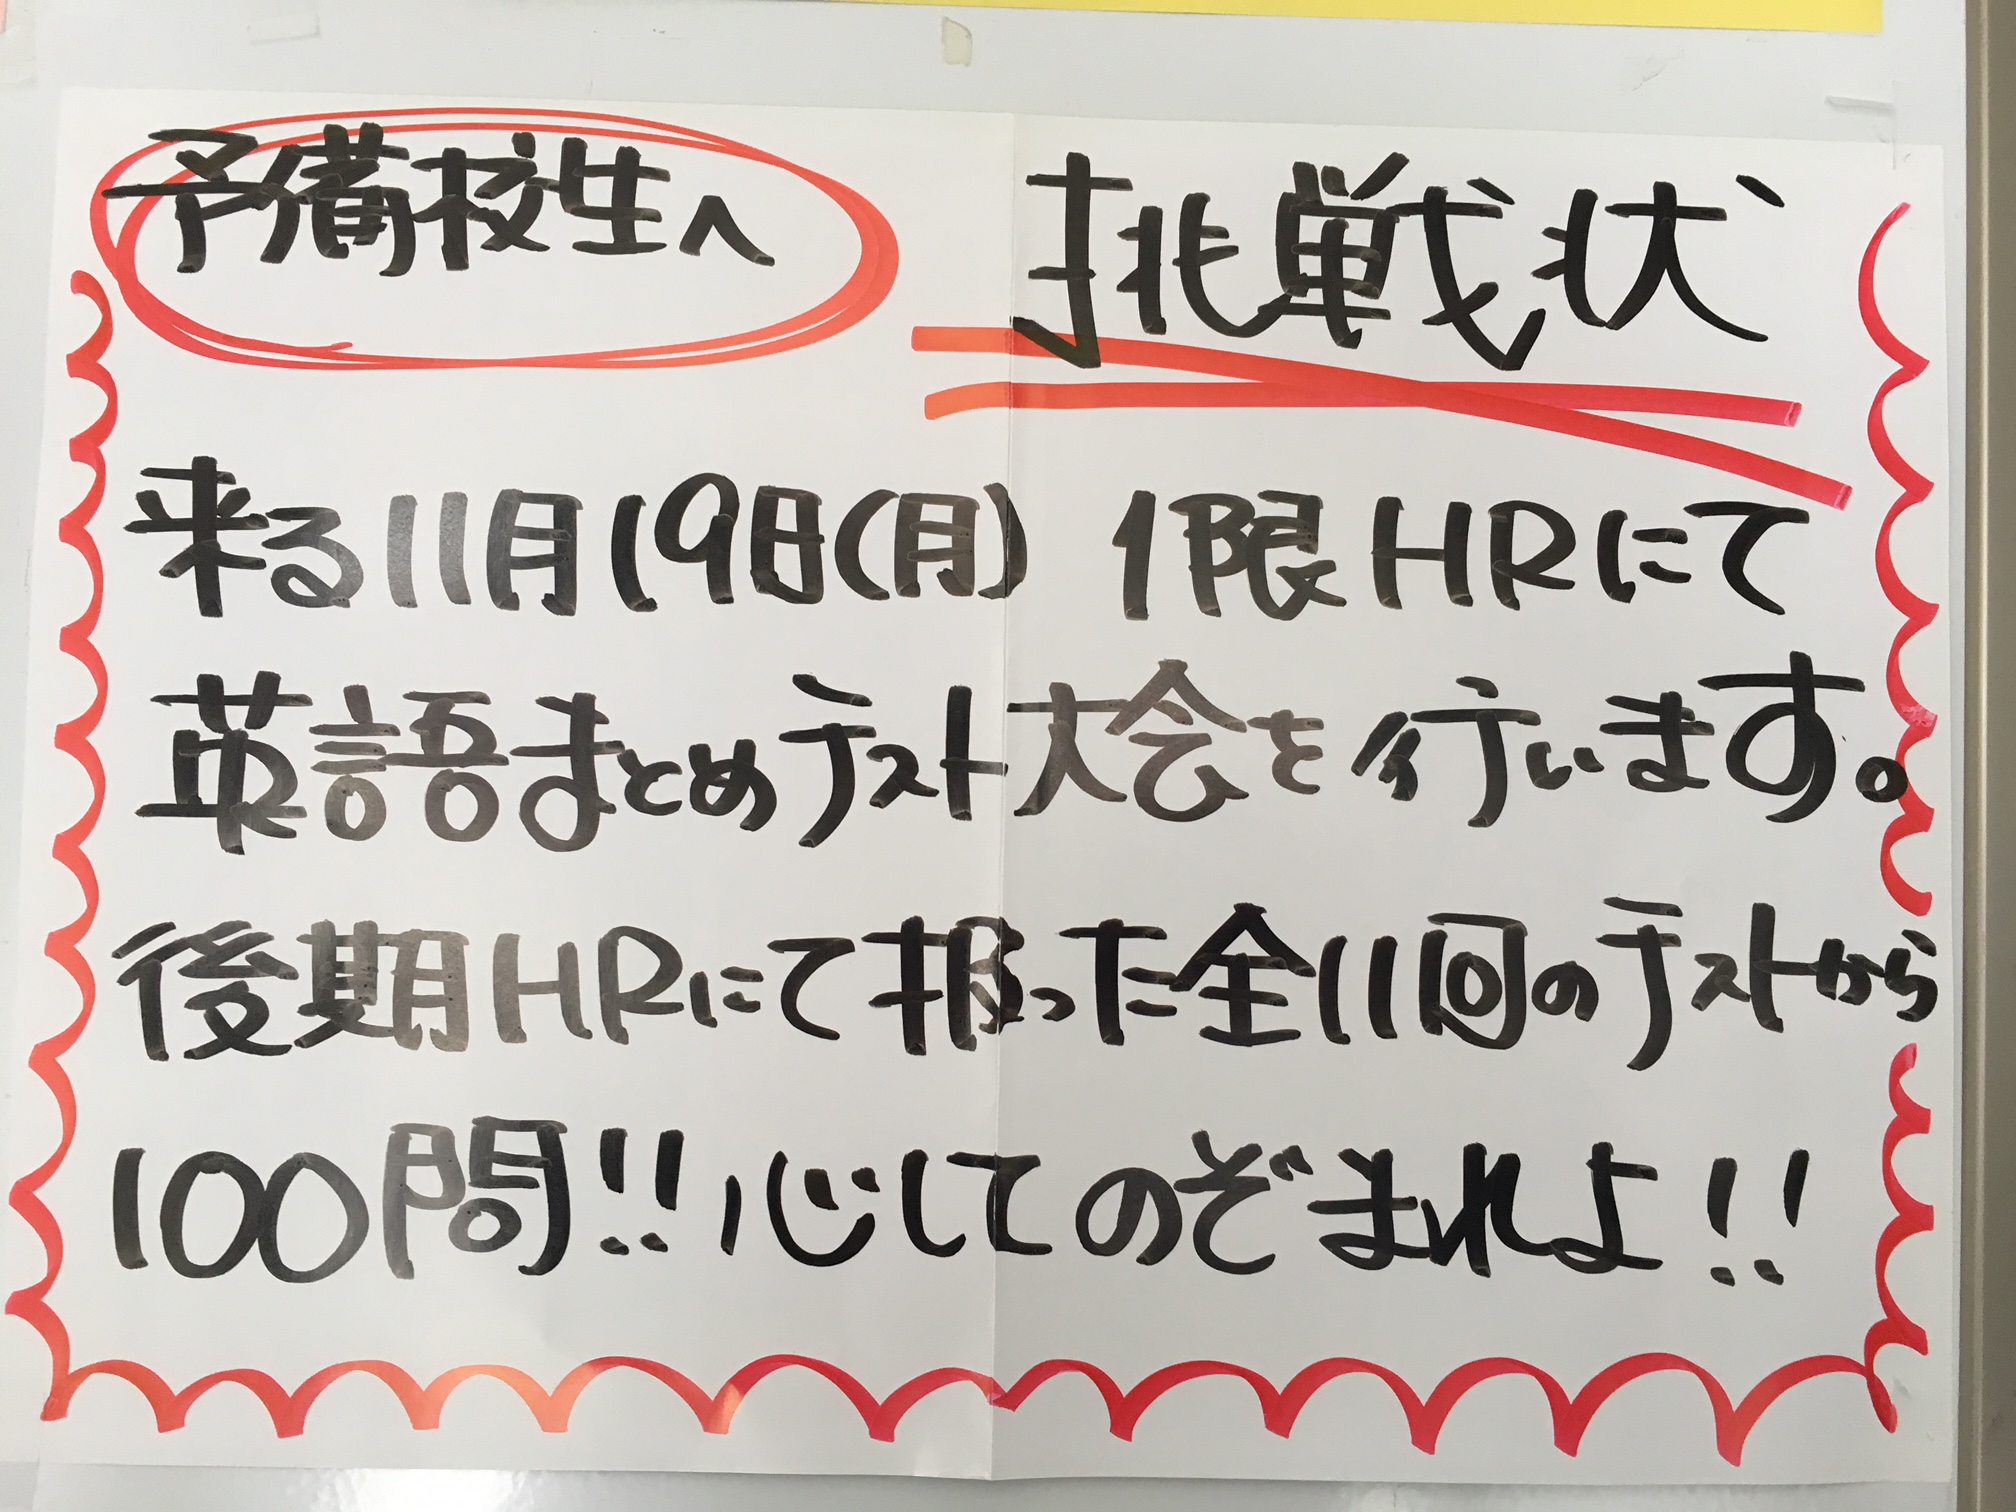 予備校生へ 挑戦状
来る11月19日(月) 1限HRにて
英語まとめテスト大会を行います。
後期HRにて扱った全11回のテストから
100問!!心してのぞまれよ!!